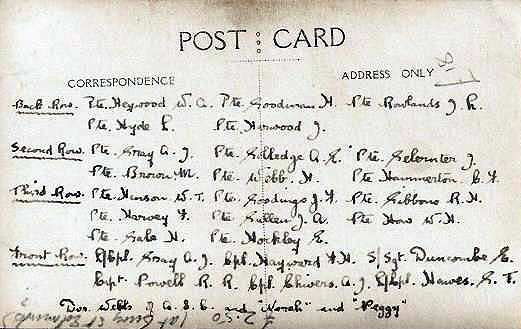 POST CARD
CORRESPONDENCE
ADDRESS ONLY
Back Row. Pte. Heywood W. A. Pte. Goodman H. Pte Rowlands J. R.
Pte. Hyde L. Pte. Horwood J.
Second Row. Pte. Gray A. J. Pte. Golledge A. E. Pte. Selointer J.
Pte. Brown M. Pte. Webb. H. Pte. Hammerton C. F.
Third Row. Pte. Hinson W. T. Pte. Goodings J. F. Pte. Gibbons R. H.
Pte. Harvey F. Pte. Gullen J. A. Pte. How W. H.
Pte. Gale H. Pte. Hockley E.
Front Row. L/Cpl. Gray A. J. Cpl. Hayward F. H. S/Sgt. Duncombe E.
Capt. Powell R. R. Cpl. Chivers A. J. L/Cpl. Hawes. G. F.
Dvr. Webb of A. S. C. and "Norah" and "Peggy"